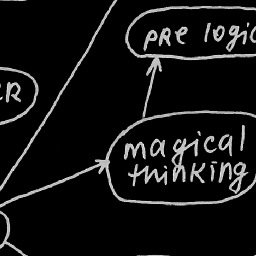 PRE logic
ER
magical
thinking